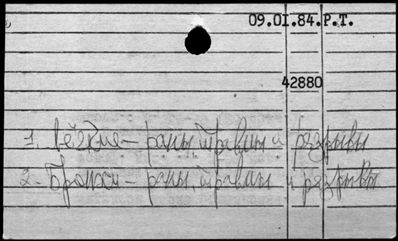 09.01.84.Р.Т.
42880
1. Лёгкие – раны, травмы и разрывы
2. Бронхи – раны, травмы и разрывы